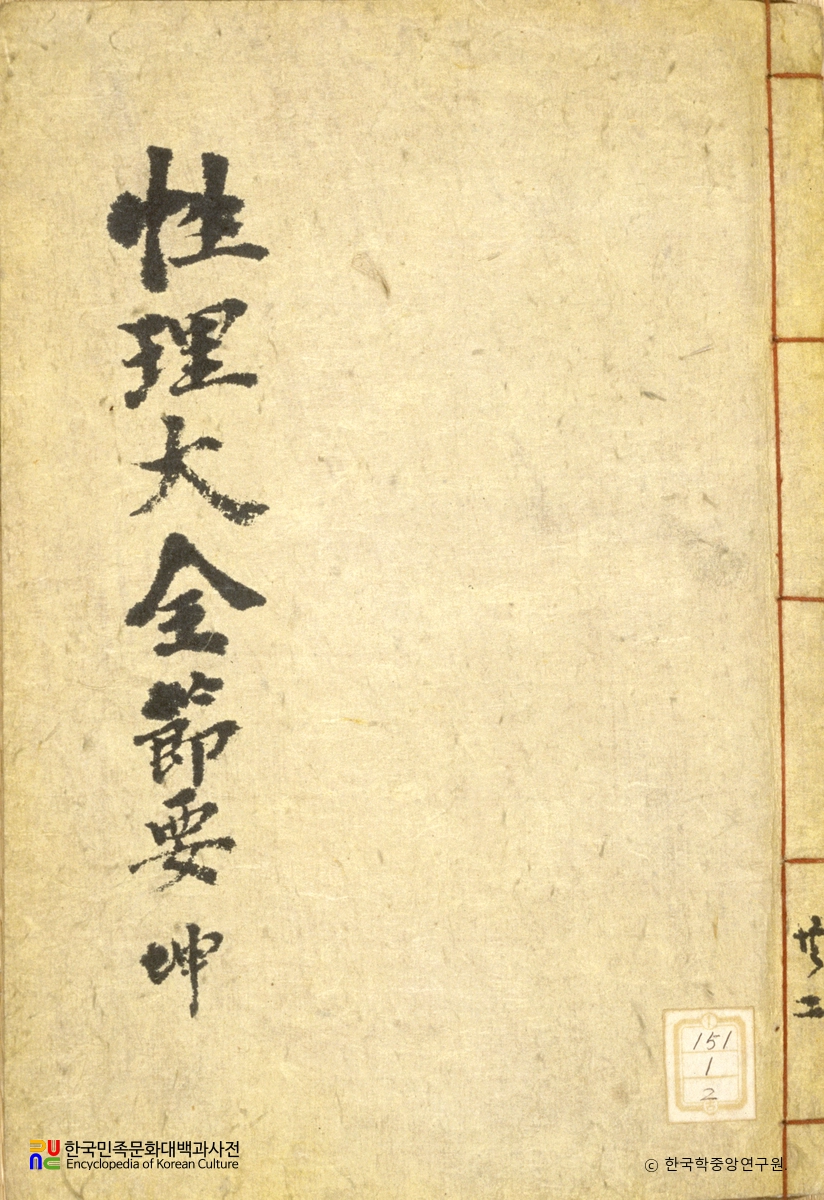 性理大全節要 坤
共二
151
1
2
한국민족문화대백과사전
Encyclopedia of Korean Culture
ⓒ 한국학중앙연구원.